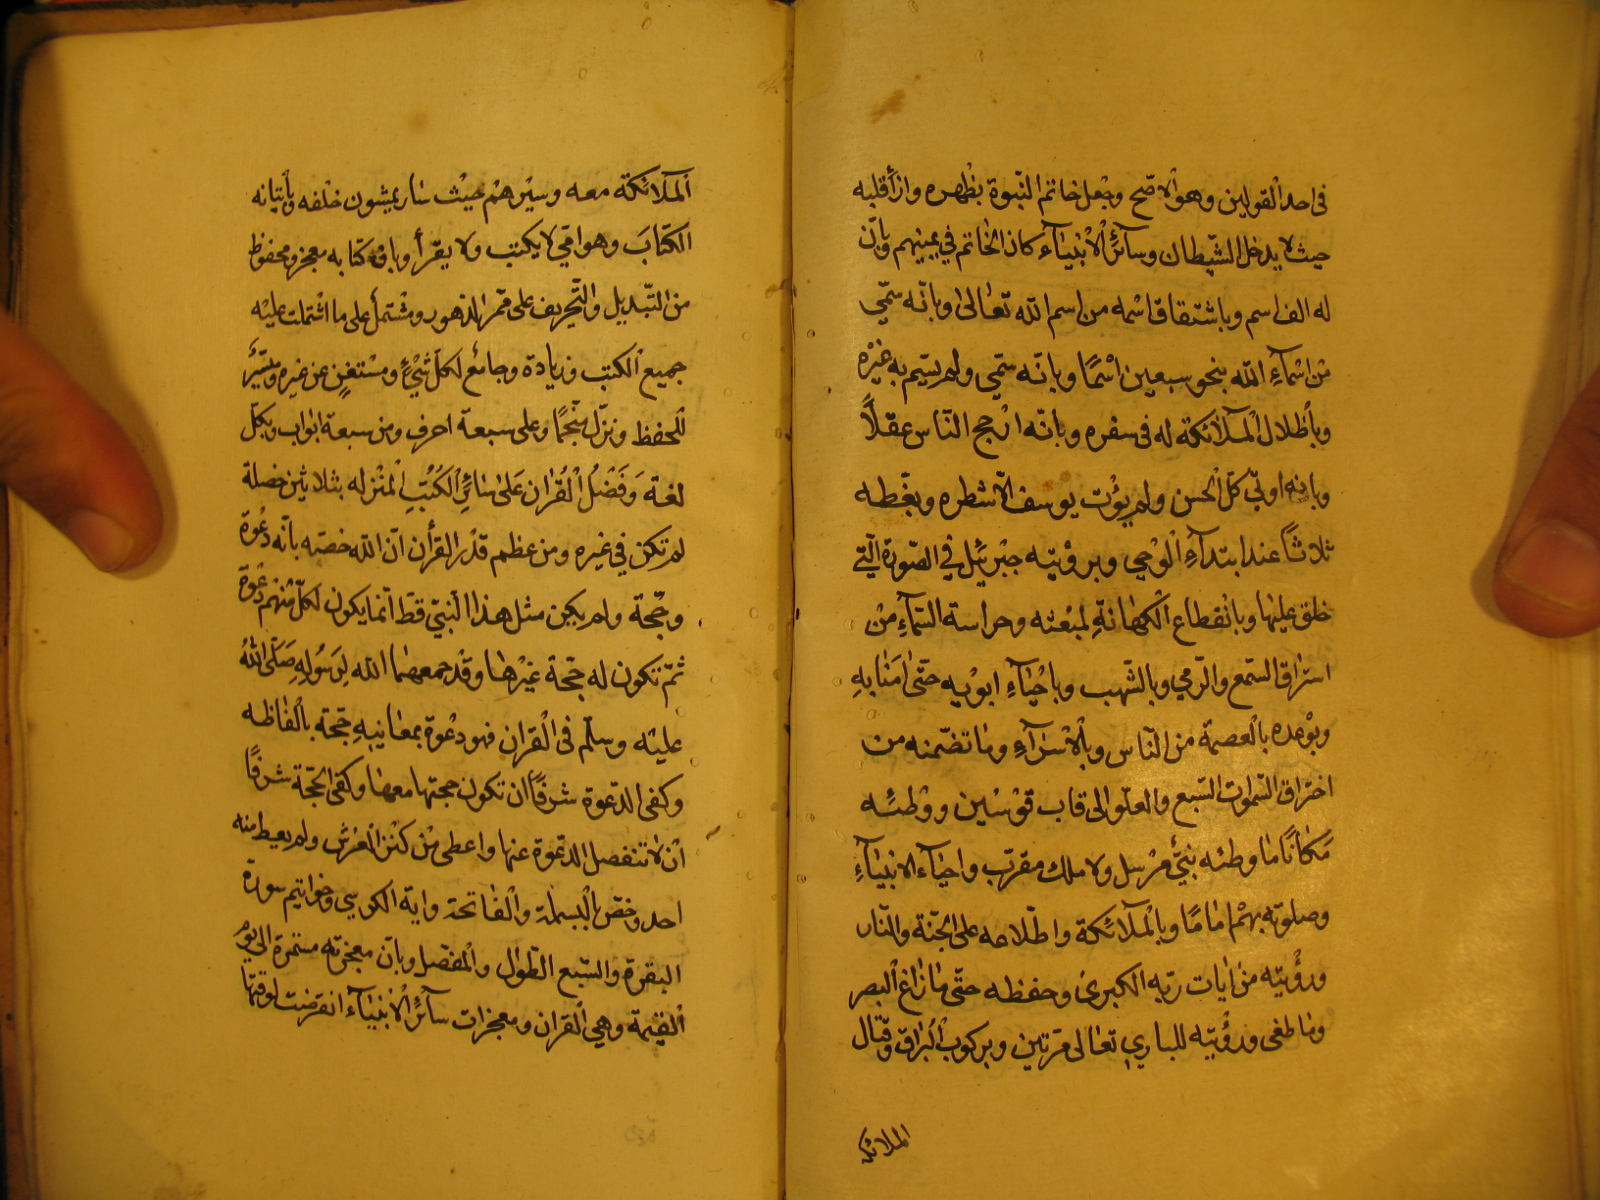 في احد القولين وهو الاصح وبجعل خاتم النبوة بظهره وازا قلبه
حيث لا يدخل الشيطان وسائر الانبياء كان الخاتم في يمينهم وبان
له الف اسم وباشتقاق اسمه من اسم الله تعالى وبانه سمي
من اسماء الله بنحو سبعين اسما وبانه سمي ولم يسم به غيره
وباظلال الملائكة له في سفره وبانه ارجح الناس عقلا
وبانه اوتي كل الحسن ولم يؤت يوسف الا شطره وبغطه
ثلاثا عند ابتداء الوحي وبرؤيته جبريئل في الصورة التي
خلق عليها وبانقطاع الكهانة لمبعثه وحراسة السماء من
استراق السمع والرمي وبالشهب وباحياء ابويه حتى امنا به
وبوعده بالعصمة من الناس وبالاسراء وما تضمنه من
اختراق السموات السبع والعلو الى قاب قوسين ووطئه
مكانا ما وطئه نبي مرسل ولا ملك مقرب واحياء الانبياء
وصلوته بهم اماما وبالملائكة واطلاعه على الجنة والنار
ورؤيته من ايات ربه الكبرى وحفظه حتى ما زاغ البصر
وما طغى ورؤيته للباري تعالى مرتين وبركوب البراق وقتال
الملائكة
الملائكة معه وسيرهم حيث سار يمشون خلفه وباتيانه
الكتاب وهو امي لا يكتب ولا يقرأ وبان كتابه معجز ومحفوظ
من التبديل والتحريف على ممر الدهور ومشتمل على ما اشتملت عليه
جميع الكتب وزيادة وجامع لكل شيء ومستغن عن غيره وميسر
للحفظ ونزل منجما وعلى سبعة احرف ومن سبعة ابواب وبكل
لغة وفضل القران على سائر الكتب المنزله بثلاثين خصلة
لم تكن في غيره ومن عظم قدر القرأن ان الله خصه بانه دعوة
وحجة ولم يكن مثل هذا النبي قط انما يكون لكل منهم دعوة
ثم تكون له حجة غيرها وقد جمعهما الله لرسوله صلى الله
عليه وسلم في القران فهو دعوة بمعانيه حجة بالفاظه
وكفى الدعوة شرفا ان تكون حجتها معها وكفى الحجة شرفا
ان لا تنفصل الدعوة عنها واعطى من كنز العرش ولم يعط منه
احد وخص بالبسملة والفاتحة واية الكرسي وخواتيم سورة
البقرة والسبع الطوال والمفصل وبان معجزته مستمرة الى يوم
القيمة وهي القران ومعجزات سائر الانبياء انقرضت لوقتها